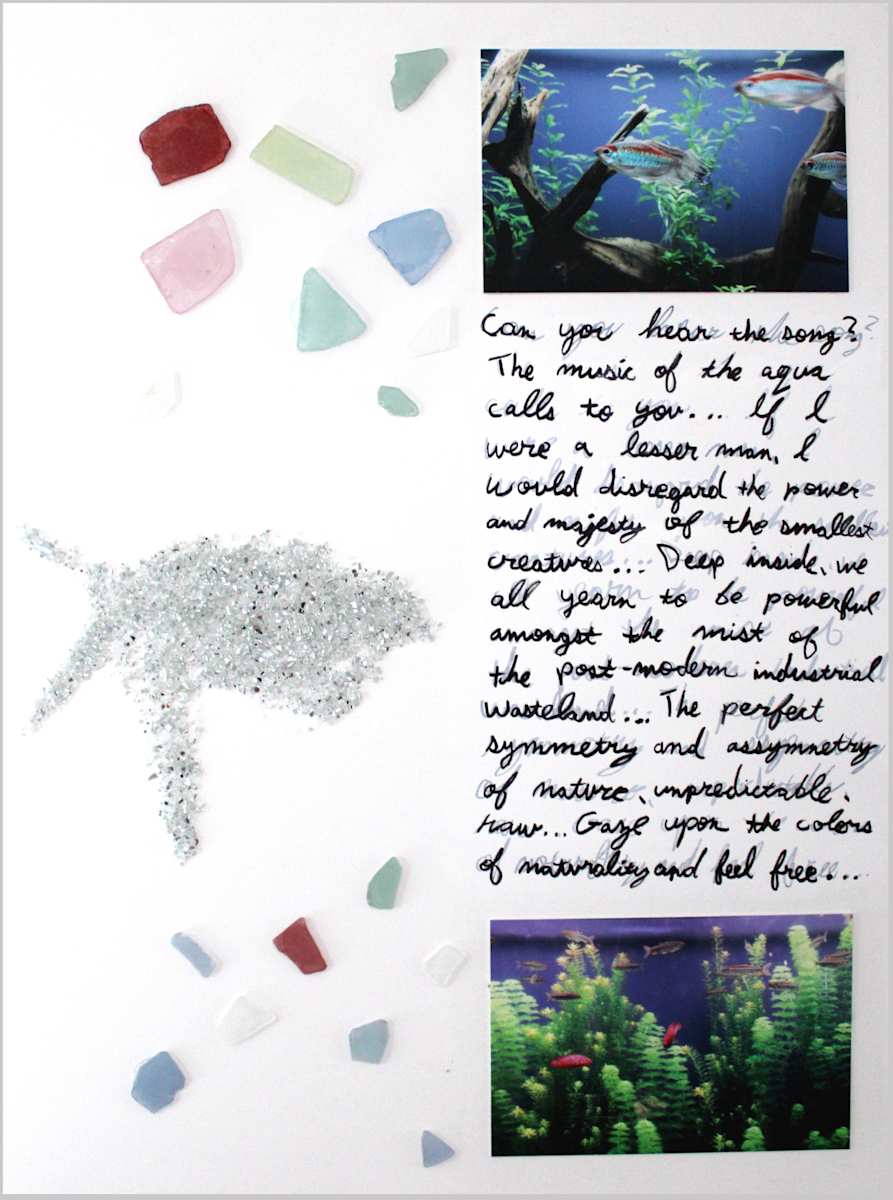 Can you hear the song?
The music of the aqua
calls to you... If I
were a lesser man, I
would disregard the power
and majesty of the smallest
creatures... Deep inside, we
all yearn to be powerful
amongst the mist of
the post-modern industrial
wasteland... The perfect
symmetry and assymnetry
of nature, unpredictable,
raw... Gaze upon the colors
of naturality and feel free...